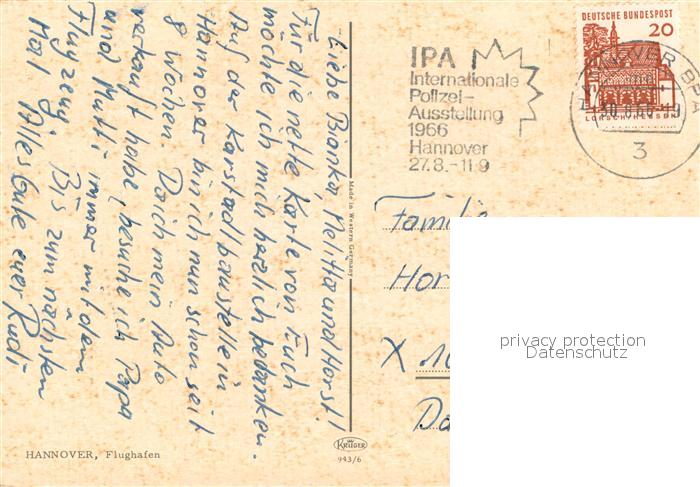 Liebe Bianka, Melitta und Horst!
Für die nette Karte von Euch
möchte ich mich herzlich bedanken.
Auf der Karstadtbaustelle in
Hannover bin ich nun schon seit
8 Wochen. Da ich mein Auto
verkauft habe, besuche ich Papa
und Mutti immer mit dem
Flugzeug. Bis zum nächsten
Mal Alles Gute euer Rudi
IPA
Internationale
Polizei-
Ausstellung
1966
Hannover
27.8.-11.9
DEUTSCHE BUNDESPOST
20
LORSCH/HESSEN
HANNOVER BPA
3
Made in Western Germany
Familie
Hor
X
Da
privacy protection
Datenschutz
KRÜGER
943/6
HANNOVER, Flughafen